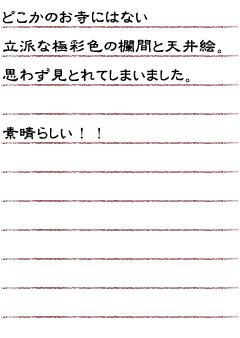 どこかのお寺にはない
立派な極彩色の欄間と天井絵。
思わず見とれてしまいました。
素晴らしい！！